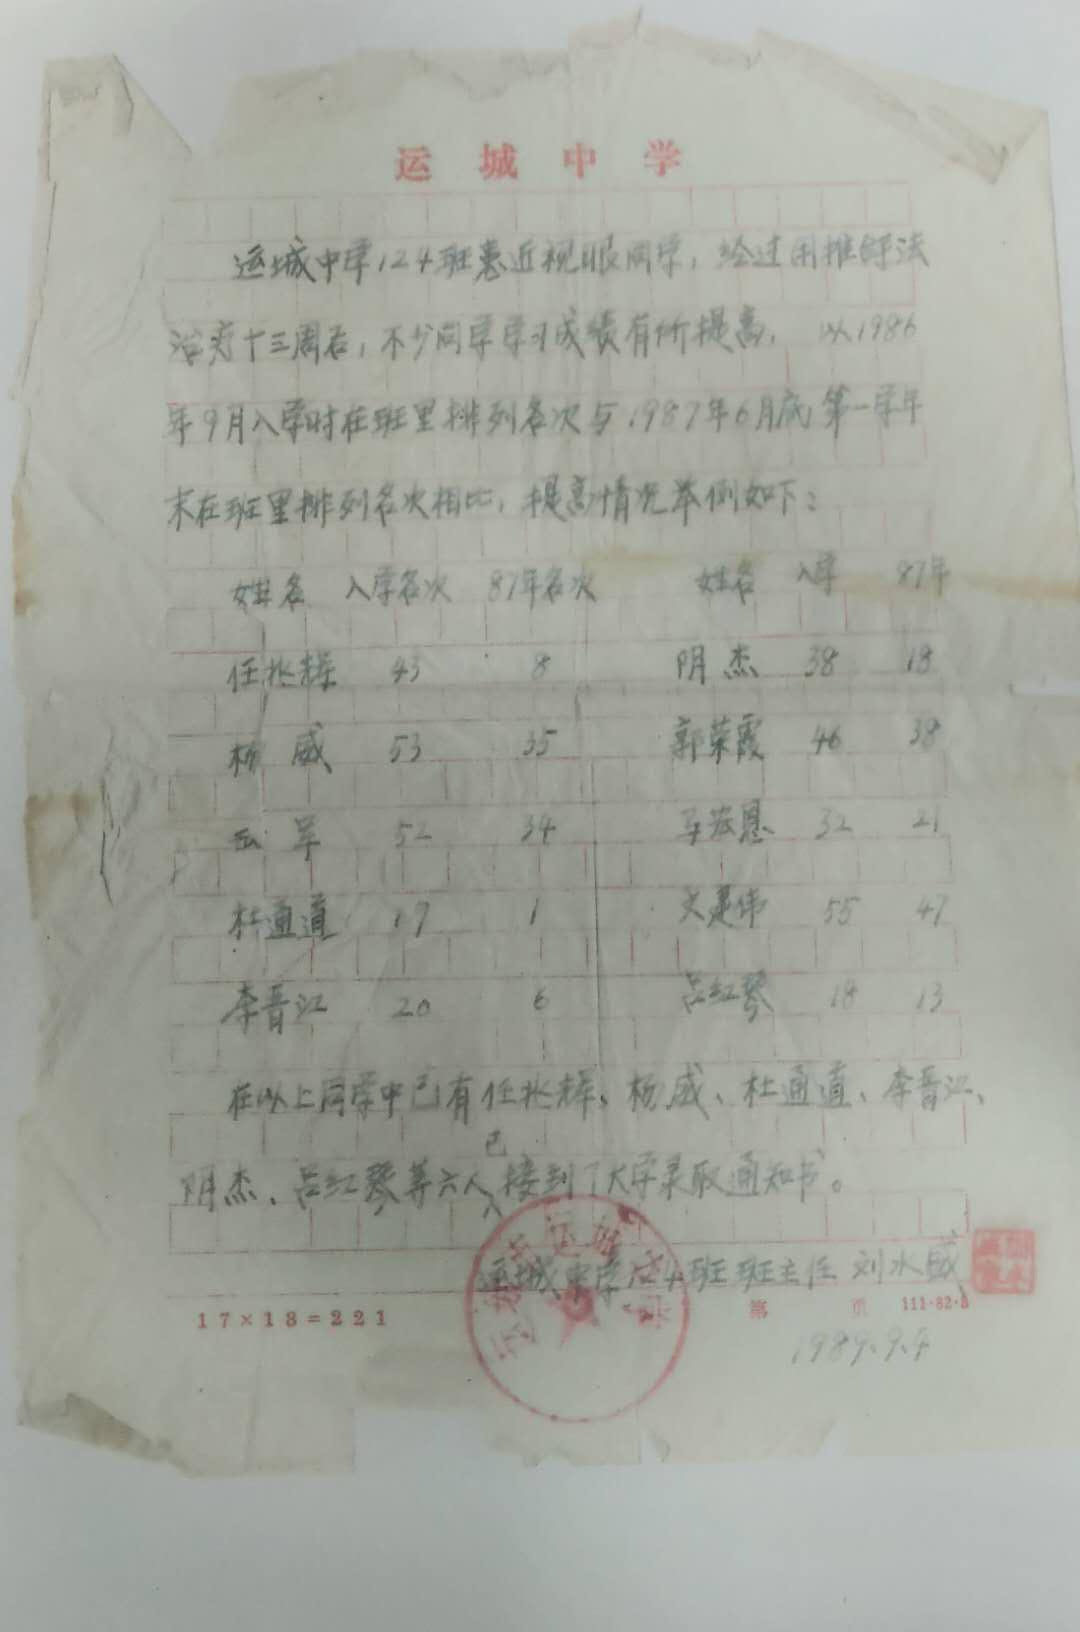 运城中学
运城中学124班患近视眼同学,经过用推舒法
治疗十三周后,不少同学学习成绩有所提高,以1986
年9月入学时在班里排列名次与1987年6月底第一学年
末在班里排列名次相比,提高情况举例如下:
姓名 入学名次 87年名次 姓名 入学 87年
任兆辉 43 8 阴杰 38 18
杨威 53 35 郭荣霞 46 38
军 52 34 马宏恩 32 21
杜通道 17 1 文建伟 55 47
李晋江 20 6 吕红琴 18 13
在以上同学中已有任兆辉、杨威、杜通道、李晋江、
阴杰、吕红琴等六人已接到了大学录取通知书。
运城中学124班班主任 刘水
17×13=221 第 页 111·82·3
1989.9.4